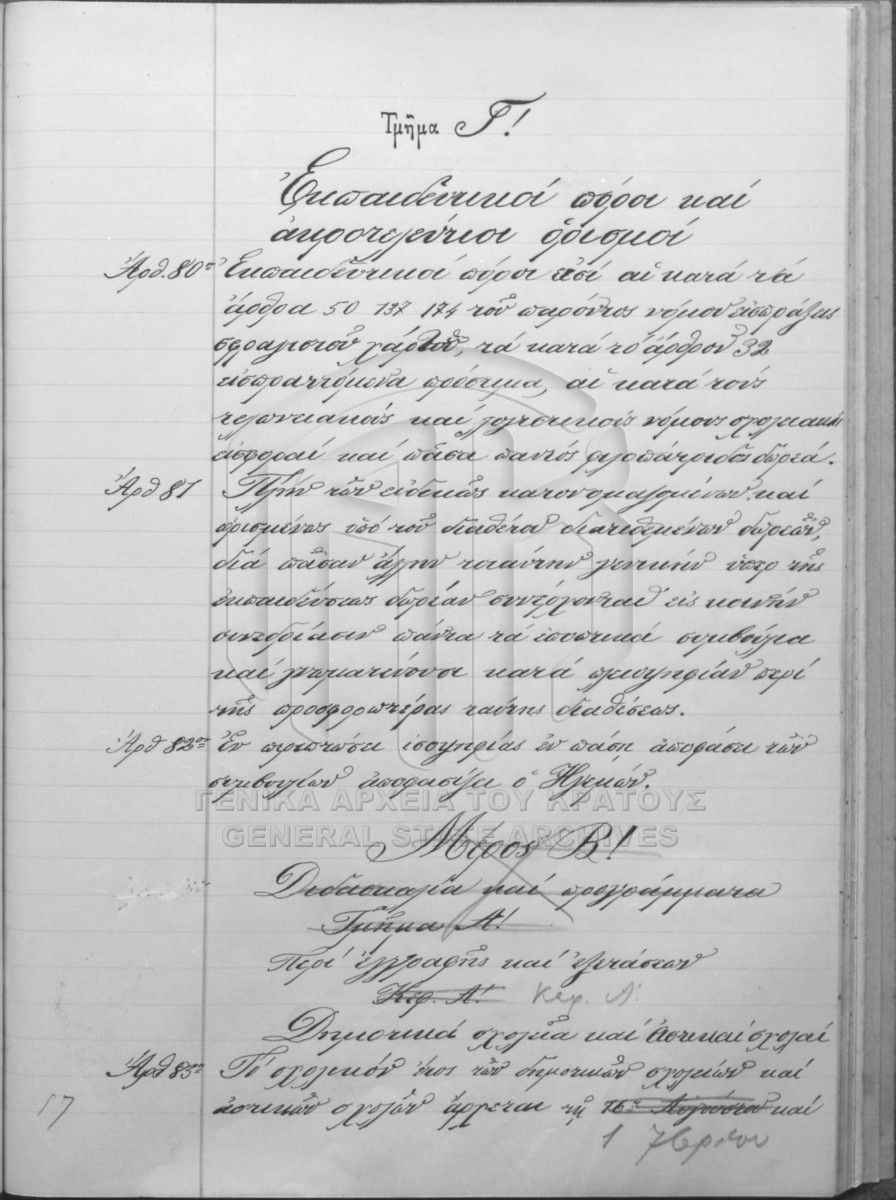 Τμῆμα Γ!
Ἐκπαιδευτικοί πόροι καί
ἀκροτελεύτιοι ὁρισμοί
Ἀρθ. 80ον Ἐκπαιδευτικοί πόροι εἰσί αἱ κατά τά
ἄρθρα 50 137 174 τοῦ παρόντος νόμου εἰσπράξεις
σφραγιστοῦ χάρτου, τά κατά τό ἄρθρον 32
εἰσπραττόμενα πρόστιμα, αἱ κατά τούς
τελωνειακούς καί λογιστικούς νόμους σχολειακαί
εἰσφοραί καί πᾶσα παντός φιλοπάτριδος δωρεά.
Ἀρθ 81 Πλήν τῶν εἰδικῶς κατονομαζομένων καί
ὁρισμένως ὑπό τοῦ διαθέτου διατιθεμένων δωρεῶν,
διά πᾶσαν ἄλλην τοιαύτην γενικήν ὑπέρ τῆς
ἐκπαιδεύσεως δωρεάν συνέρχονται εἰς κοινήν
συνεδρίασιν πάντα τά ἐποπτικά συμβούλια
καί γνωματεύουσι κατά πλειοψηφίαν περί
τῆς προσφορωτέρας ταύτης διαθέσεως.
Ἀρθ 82ον Ἐν περιπτώσει ἰσοψηφίας ἐν πάσῃ ἀποφάσει τῶν
συμβουλίων ἀποφασίζει ὁ Ἡγεμών.
ΓΕΝΙΚΑ ΑΡΧΕΙΑ ΤΟΥ ΚΡΑΤΟΥΣ
GENERAL STATE ARCHIVES
Μέρος Β!
Διδασκαλία καί προγράμματα
Τμῆμα Α!
Περί ἐγγραφῆς καί ἐξετάσεων
Κεφ. Α! Κεφ. Α!
Δημοτικά σχολεῖα καί ἀστικαί σχολαί
Ἀρθ 83ον Τό σχολικόν ἔτος τῶν δημοτικῶν σχολείων καί
ἀστικῶν σχολῶν ἄρχεται τῇ 16ῃ Αὐγούστου καί
1 7βρίου
17